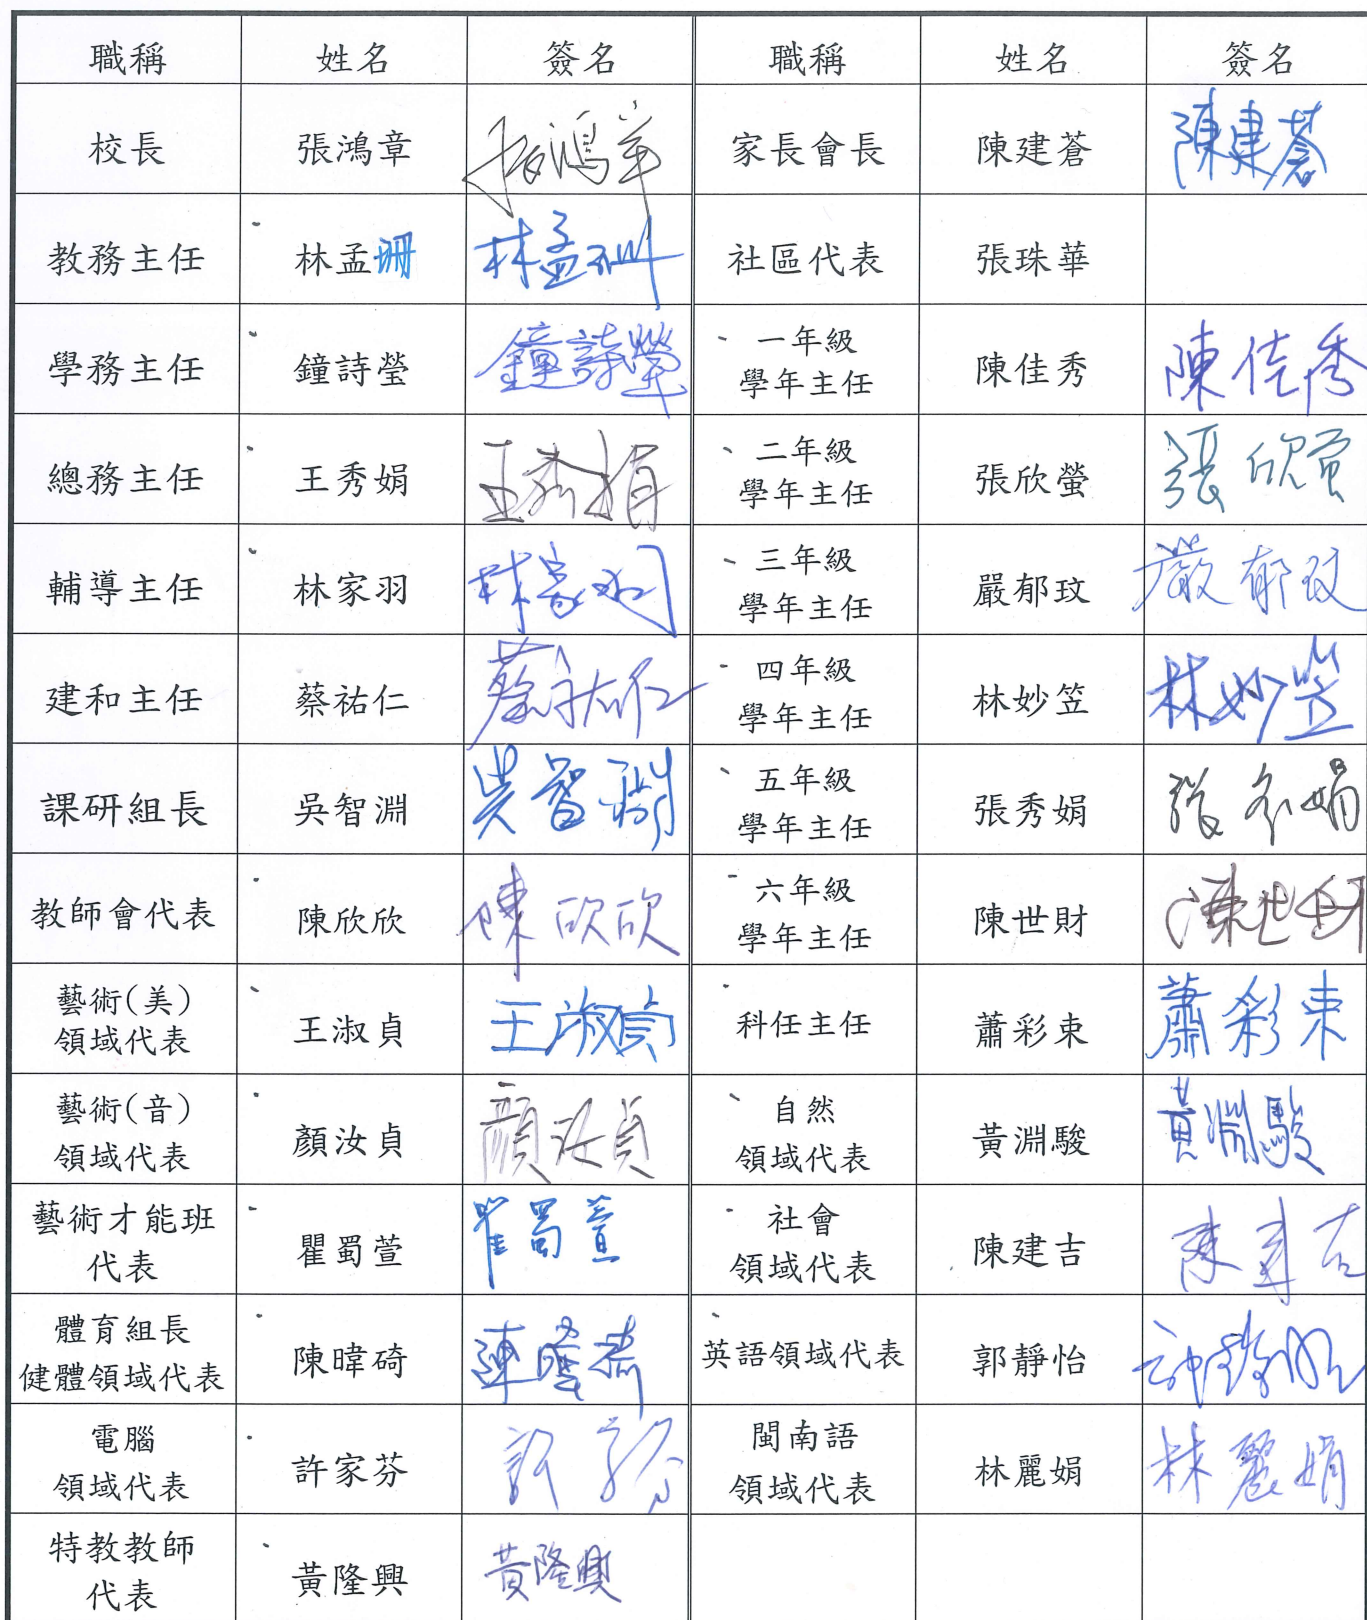 職稱 姓名 簽名 職稱 姓名 簽名
校長 張鴻章 張鴻章 家長會長 陳建蒼 陳建蒼
教務主任 林孟珊 林孟珊 社區代表 張珠華
學務主任 鐘詩瑩 鐘詩瑩 一年級
學年主任 陳佳秀 陳佳秀
總務主任 王秀娟 王秀娟 二年級
學年主任 張欣螢 張欣螢
輔導主任 林家羽 林家羽 三年級
學年主任 嚴郁玟 嚴郁玟
建和主任 蔡祐仁 蔡祐仁 四年級
學年主任 林妙笠 林妙笠
課研組長 吳智淵 吳智淵 五年級
學年主任 張秀娟 張秀娟
教師會代表 陳欣欣 陳欣欣 六年級
學年主任 陳世財 陳世財
藝術(美)
領域代表 王淑貞 王淑貞 科任主任 蕭彩束 蕭彩束
藝術(音)
領域代表 顏汝貞 顏汝貞 自然
領域代表 黃淵駿 黃淵駿
藝術才能班
代表 瞿蜀萱 瞿蜀萱 社會
領域代表 陳建吉 陳建吉
體育組長
健體領域代表 陳暐碕 英語領域代表 郭靜怡
電腦
領域代表 許家芬 許家芬 閩南語
領域代表 林麗娟 林麗娟
特教教師
代表 黃隆興 黃隆興